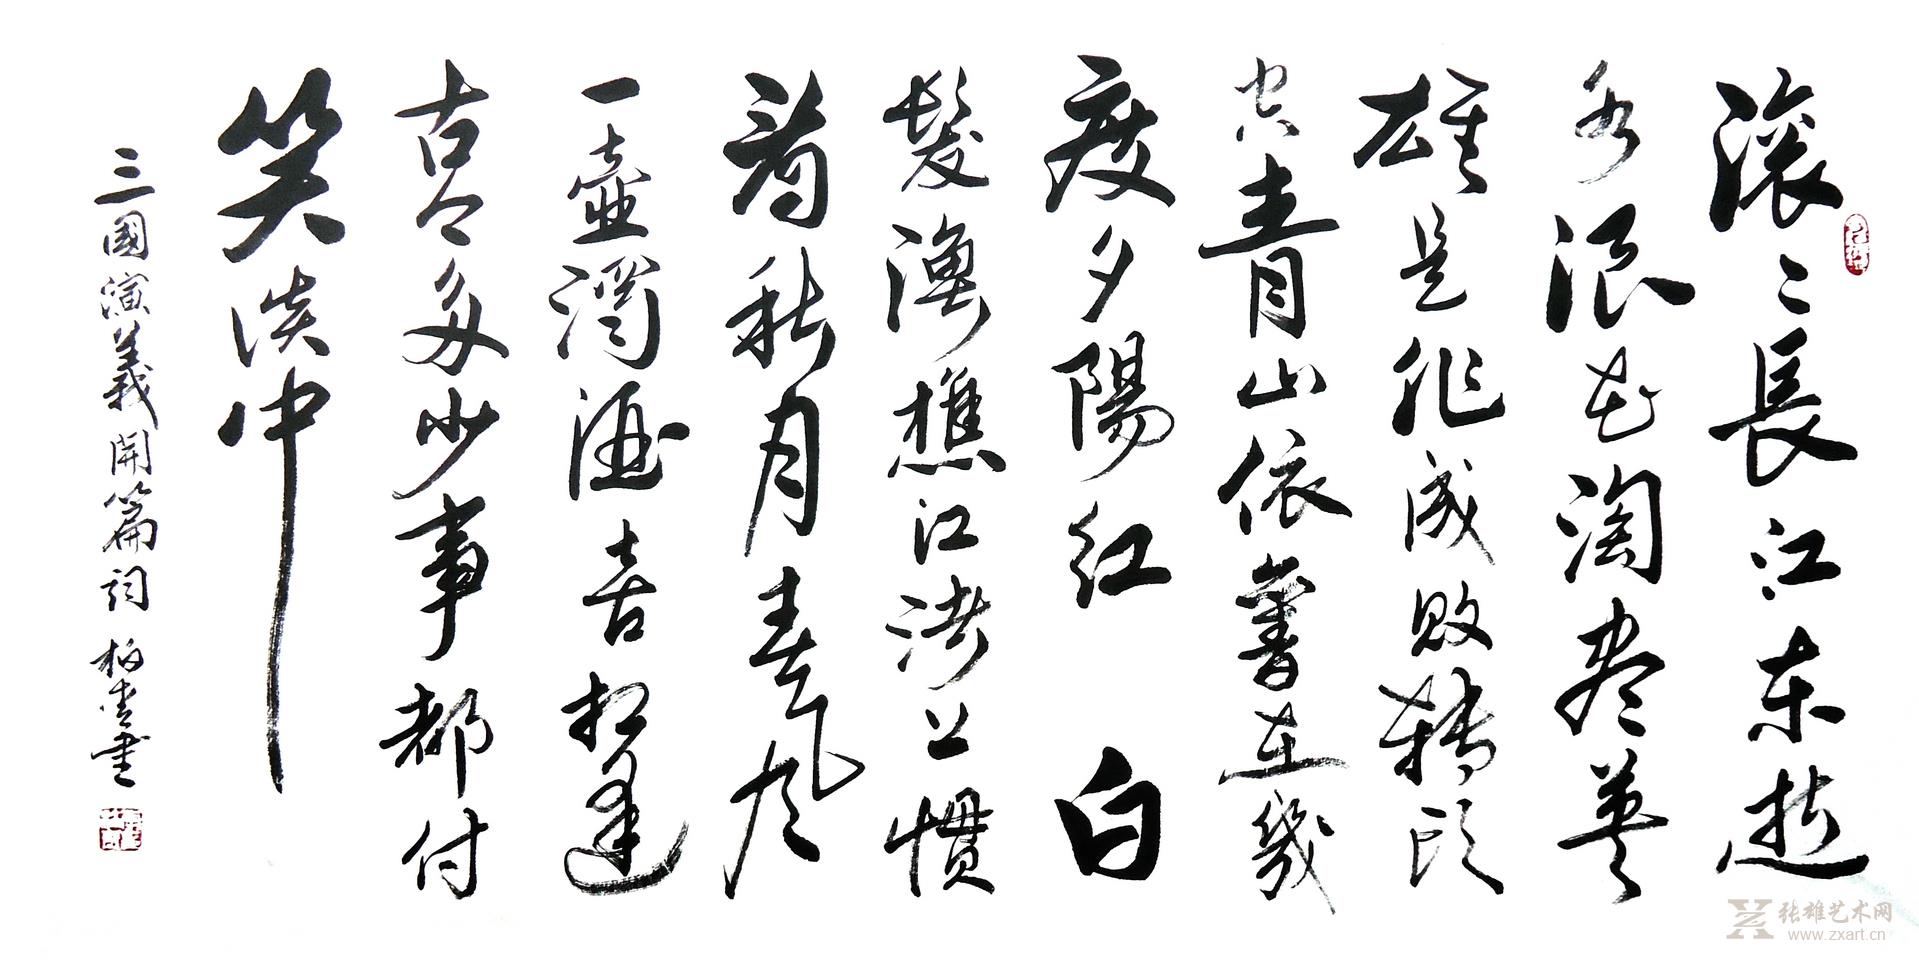 滚〻長江东逝
水浪花淘尽英
雄是非成败转頭
空青山依舊在幾
度夕陽红 白
髮渔樵江渚上惯
看秋月春风
一壶濁酒喜相逢
古今多少事都付
笑谈中
三國演義開篇詞 柏青書
张雄艺术网
www.zxart.cn